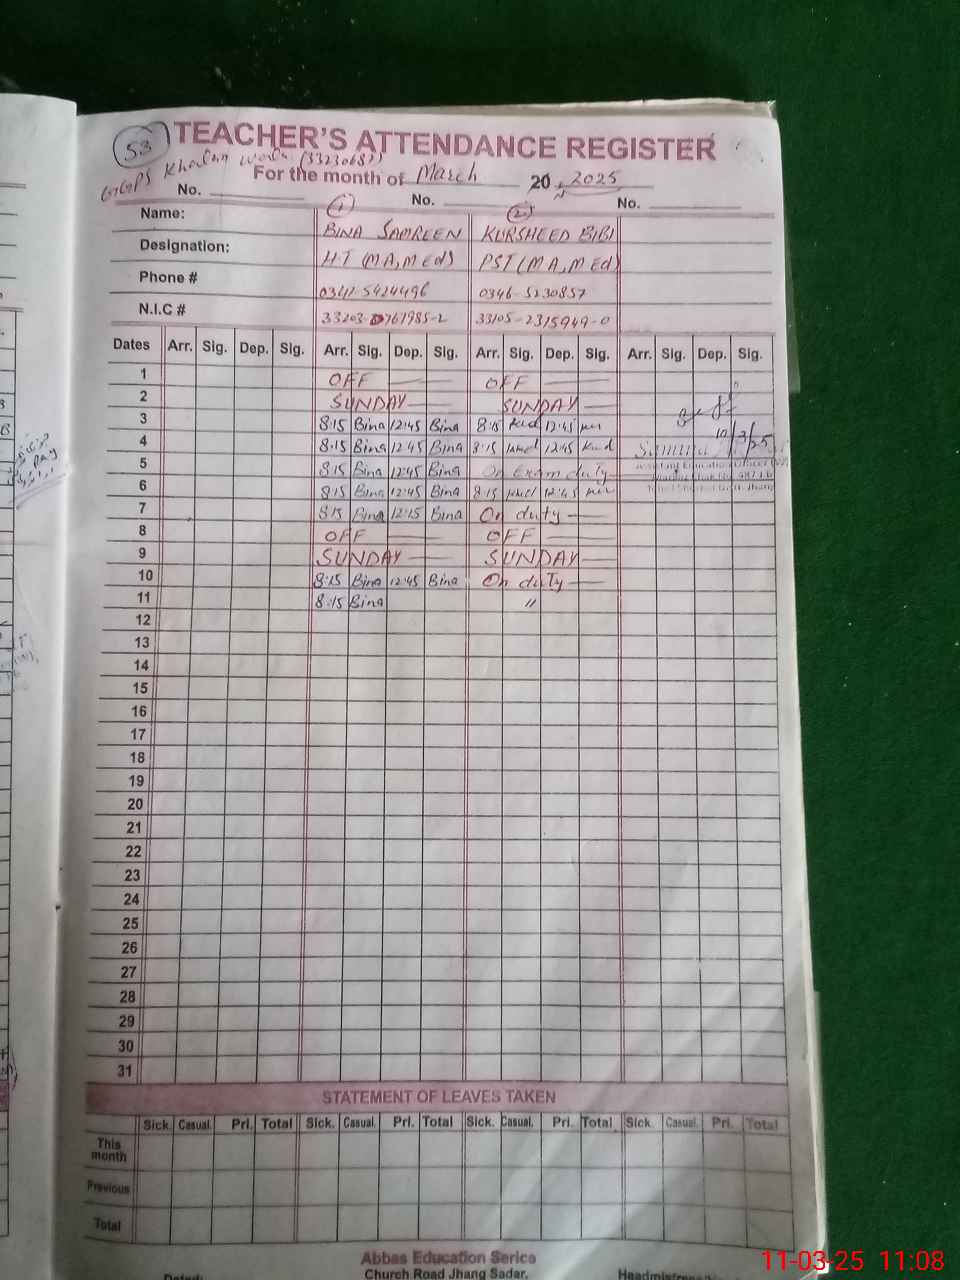 53
TEACHER'S ATTENDANCE REGISTER
GGPS Khalan wala (3323068?)
For the month of March 20 2025
No. No. No.
1 2
Name: BINA SAMREEN KURSHEED BIBI
Designation: H.T (MA, M Ed) PST (MA, M Ed)
Phone # 0346-5230857
N.I.C # 33105-2315949-0
Dates Arr. Sig. Dep. Sig. Arr. Sig. Dep. Sig. Arr. Sig. Dep. Sig. Arr. Sig. Dep. Sig.
1 OFF OFF
2 SUNDAY SUNDAY
3 8:15 Bina 12:45 Bina 8:15 12:45
4 8:15 Bina 12:45 Bina 8:15 12:45
10/3/25
5 8:15 Bina 12:45 Bina On Exam duty
6 8:15 Bina 12:45 Bina 8:15 12:45
7 8:15 Bina 12:15 Bina On duty
8 OFF OFF
9 SUNDAY SUNDAY
10 8:15 Bina 12:45 Bina On duty
11 8:15 Bina "
12
13
14
15
16
17
18
19
20
21
22
23
24
25
26
27
28
29
30
31
STATEMENT OF LEAVES TAKEN
Sick. Casual. Pri. Total Sick. Casual. Pri. Total Sick. Casual. Pri. Total Sick. Casual. Pri. Total
This month
Previous
Total
Abbas Education Serice
Church Road Jhang Sadar.
Dated:
11-03-25 11:08